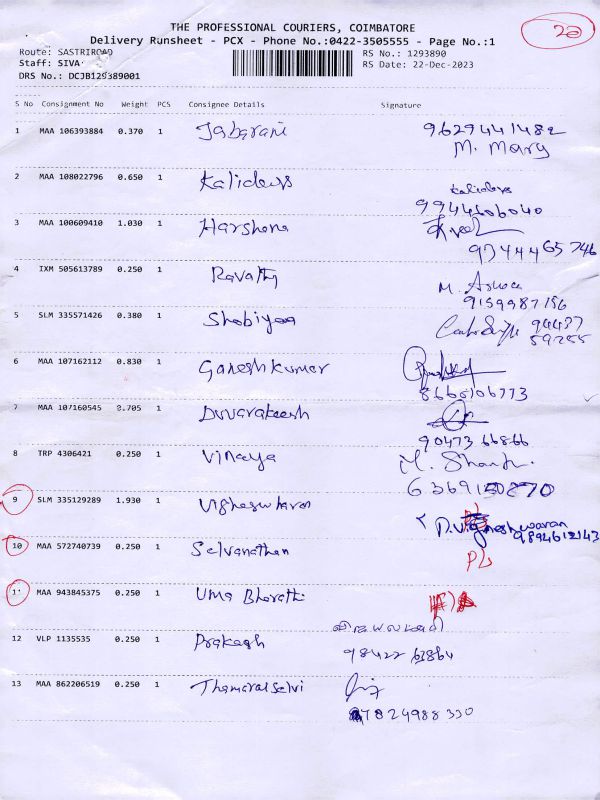 THE PROFESSIONAL COURIERS, COIMBATORE
Delivery Runsheet - PCX - Phone No.:0422-3505555 - Page No.:1
20
Route: SASTRIROAD
Staff: SIVA
DRS No.: DCJB129389001
RS No.: 1293890
RS Date: 22-Dec-2023
S No Consignment No Weight PCS Consignee Details Signature
1 MAA 106393884 0.370 1 Jabarani 9629441482
M. Mary
2 MAA 108022796 0.650 1 Kalidevs kalidevs
9944606040
3 MAA 100609410 1.030 1 Harshona
9744465746
4 IXM 505613789 0.250 1 Ravathy M.
9159987156
5 SLM 335571426 0.380 1 Shobiyaa 94437
59255
6 MAA 107162112 0.830 1 Ganeshkumar
8668106773
7 MAA 107160545 2.705 1 Duvarakeesh
90473 66866
8 TRP 4306421 0.250 1 Vinaya M.
6369150870
9 SLM 335129289 1.930 1 Vigheswaran D.Vigneshwaran
9894612143
10 MAA 572740739 0.250 1 Selvanathan PL
11 MAA 943845375 0.250 1 Uma Bharathi
12 VLP 1135535 0.250 1 Prakash
98422 63864
13 MAA 862206519 0.250 1 Thamaraiselvi
7824988330